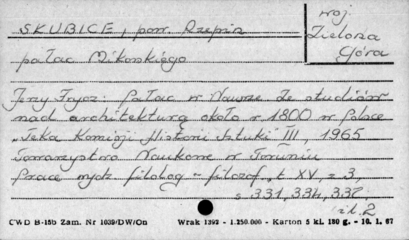 SKUBICE, pow. Rzepin
woj.
Zielona
Góra
pałac Mikorskiego
Jerzy Frycz: Pałac w Nawrze. Ze studiów
nad architekturą około r 1800 w Polsce
„Teka Komisji Historii Sztuki" III, 1965
Towarzystwo Naukowe w Toruniu
Prace wydz. filolog - filozof., t XV, z 3,
s 331, 334, 337
il. 2
CWD B-15b Zam. Nr 1039/DW/On Wrak 1392 - 1.250.000 - Karton 5 kl. 180 g. - 10. 1. 67